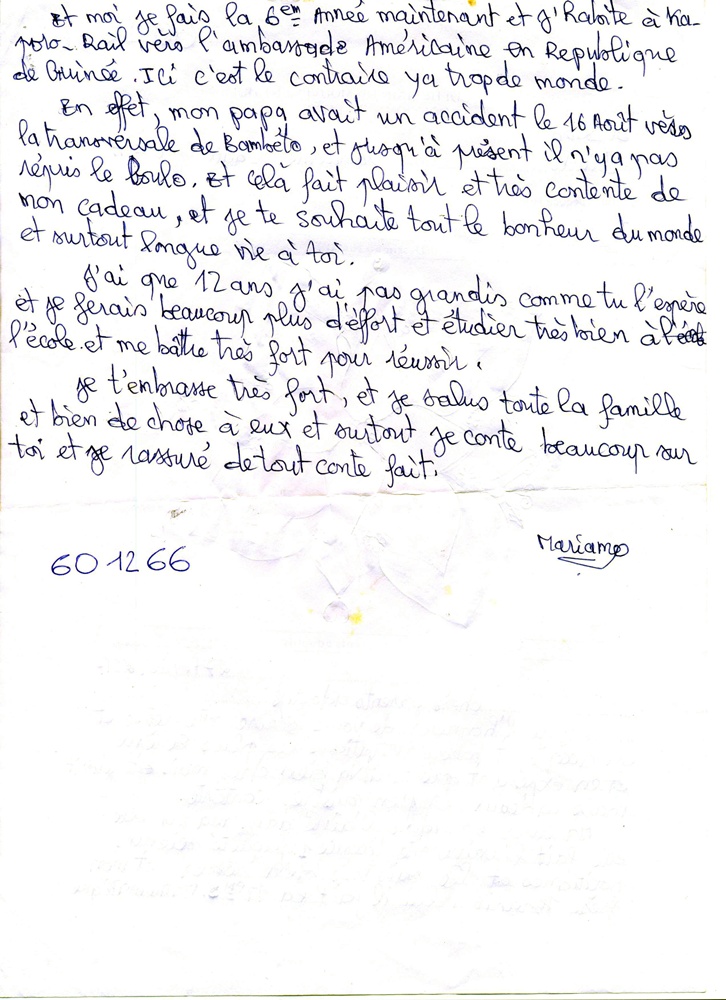 Et moi je fais la 6em Année maintenant et j'Rabite à Ka-
poro-Rail vèrs l'ambassade Américaine en Republique
de Guinée. Ici c'est le contraire ya trop de monde.
En effet, mon papa avait un accident le 16 Août vèrs
la transvèrsale de Bambéto, et jusqu'à présent il n'ya pas
répris le boulo. Et celà fait plaisir et très contente de
mon cadeau, et je te souhaite tout le bonheur du monde
et surtout longue vie à toi.
J'ai que 12 ans j'ai pas grandis comme tu l'espère
et je ferais beaucoup plus d'éffort et étudier très bien à
l'école et me bâttre très fort pour réussir.
Je t'embrasse très fort, et je salus toute la famille
et bien de chose à eux et surtout je conte beaucoup sur
toi et je rassuré de tout conte fait.
Mariame
601266